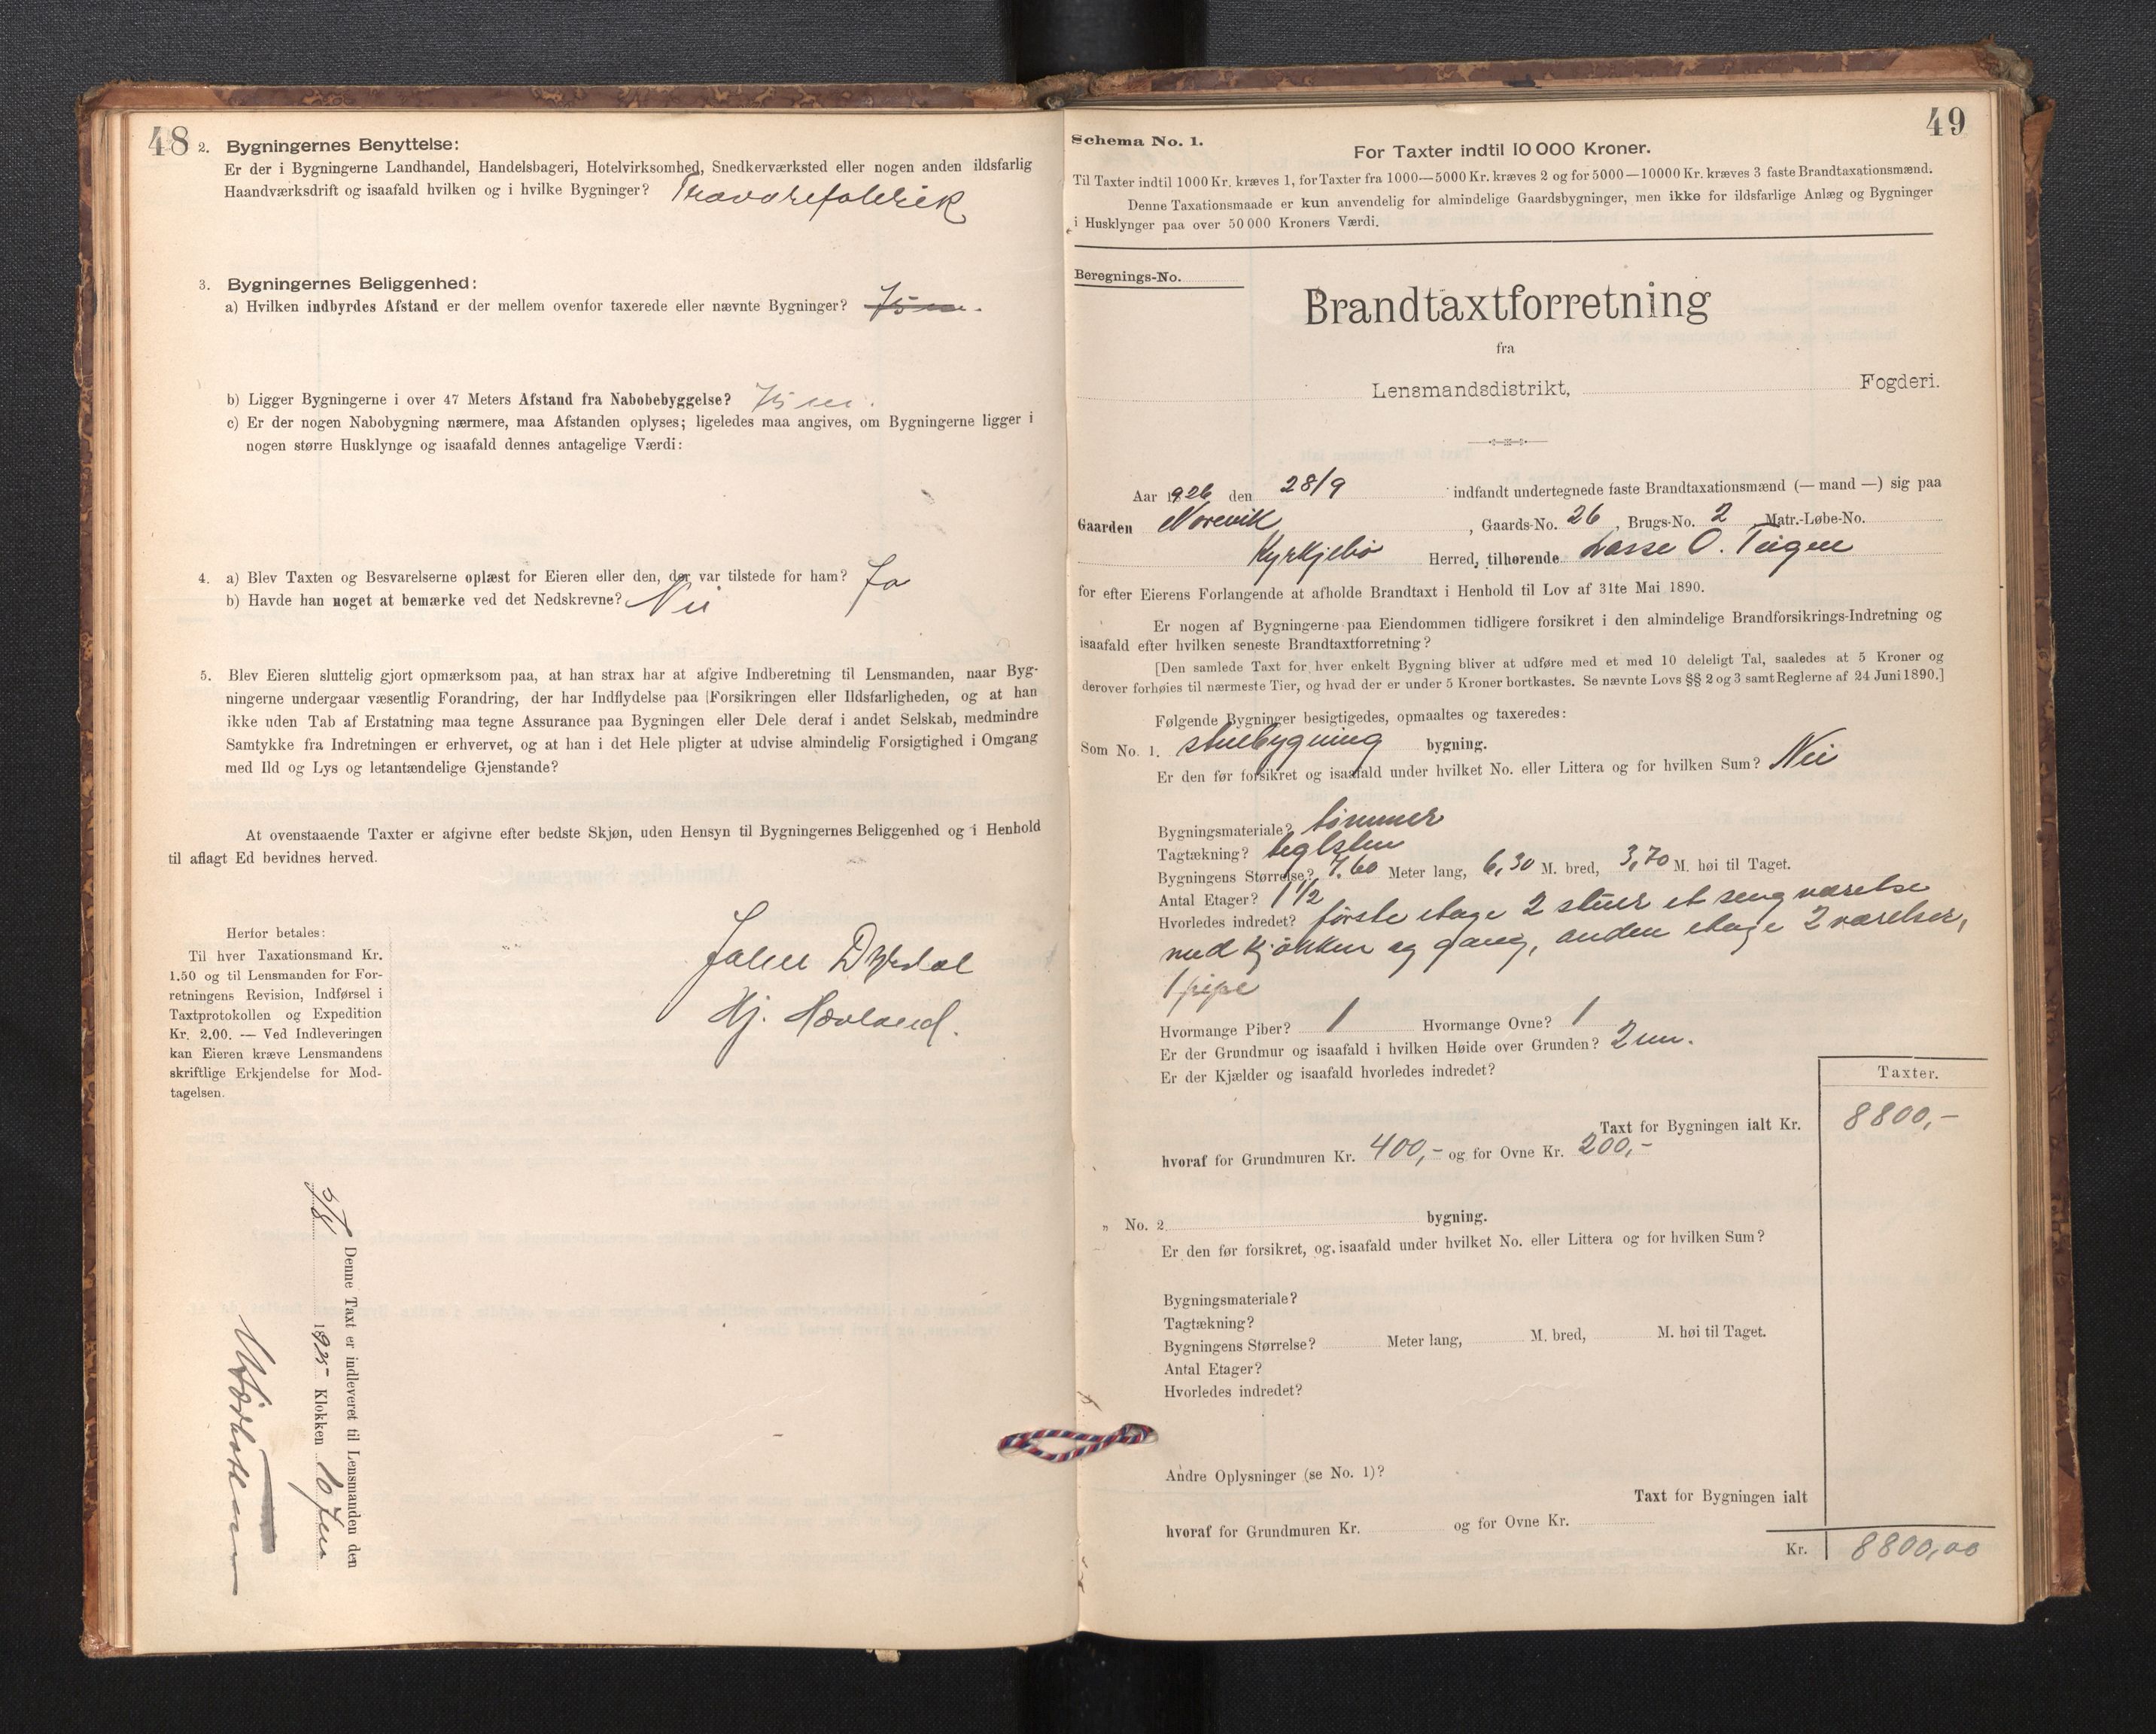 48
2. Bygningernes Benyttelse:
Er der i Bygningerne Landhandel, Handelsbageri, Hotelvirksomhed, Snedkerværksted eller nogen anden ildsfarlig
Haandværksdrift og isaafald hvilken og i hvilke Bygninger? Trævarefabrik
3. Bygningernes Beliggenhed:
a) Hvilken indbyrdes Afstand er der mellem ovenfor taxerede eller nævnte Bygninger? 75 m.
b) Ligger Bygningerne i over 47 Meters Afstand fra Nabobebyggelse? 75 m.
c) Er der nogen Nabobygning nærmere, maa Afstanden oplyses; ligeledes maa angives, om Bygningerne ligger i
nogen større Husklynge og isaafald dennes antagelige Værdi:
4. a) Blev Taxten og Besvarelserne oplæst for Eieren eller den, der var tilstede for ham? Ja
b) Havde han noget at bemærke ved det Nedskrevne? Nei
5. Blev Eieren sluttelig gjort opmærksom paa, at han strax har at afgive Indberetning til Lensmanden, naar Byg-
ningerne undergaar væsentlig Forandring, der har Indflydelse paa Forsikringen eller Ildsfarligheden, og at han
ikke uden Tab af Erstatning maa tegne Assurance paa Bygningen eller Dele deraf i andet Selskab, medmindre
Samtykke fra Indretningen er erhvervet, og at han i det Hele pligter at udvise almindelig Forsigtighed i Omgang
med Ild og Lys og letantændelige Gjenstande?
At ovenstaaende Taxter er afgivne efter bedste Skjøn, uden Hensyn til Bygningernes Beliggenhed og i Henhold
til aflagt Ed bevidnes herved.
Herfor betales:
Til hver Taxationsmand Kr.
1.50 og til Lensmanden for For-
retningens Revision, Indførsel i
Taxtprotokollen og Expedition
Kr. 2.00. — Ved Indleveringen
kan Eieren kræve Lensmandens
skriftlige Erkjendelse for Mod-
tagelsen.
John Dyrdal
Hj. Hovland.
Denne Taxt er indleveret til Lensmanden den
5/8 1925 Klokken 10 fm
49
Schema No. 1.
For Taxter indtil 10 000 Kroner.
Til Taxter indtil 1000 Kr. kræves 1, for Taxter fra 1000—5000 Kr. kræves 2 og for 5000—10000 Kr. kræves 3 faste Brandtaxationsmænd.
Denne Taxationsmaade er kun anvendelig for almindelige Gaardsbygninger, men ikke for ildsfarlige Anlæg og Bygninger
i Husklynger paa over 50 000 Kroners Værdi.
Beregnings-No.
Brandtaxtforretning
fra
Lensmandsdistrikt, Fogderi.
Aar 1926 den 28/9 indfandt undertegnede faste Brandtaxationsmænd (— mand —) sig paa
Gaarden Norevik, Gaards-No. 26, Brugs-No. 2 Matr.-Løbe-No.
Kyrkjebø Herred, tilhørende Lasse O. Teigen
for efter Eierens Forlangende at afholde Brandtaxt i Henhold til Lov af 31te Mai 1890.
Er nogen af Bygningerne paa Eiendommen tidligere forsikret i den almindelige Brandforsikrings-Indretning og
isaafald efter hvilken seneste Brandtaxtforretning?
[Den samlede Taxt for hver enkelt Bygning bliver at udføre med et med 10 deleligt Tal, saaledes at 5 Kroner og
derover forhøies til nærmeste Tier, og hvad der er under 5 Kroner bortkastes. Se nævnte Lovs §§ 2 og 3 samt Reglerne af 24 Juni 1890.]
Følgende Bygninger besigtigedes, opmaaltes og taxeredes:
Som No. 1. stuebygning bygning.
Er den før forsikret og isaafald under hvilket No. eller Littera og for hvilken Sum? Nei
Bygningsmateriale? tømmer
Tagtækning? teglsten
Bygningens Størrelse? 7.60 Meter lang, 6,30 M. bred, 3,70 M. høi til Taget.
Antal Etager? 1 1/2
Hvorledes indredet? første etage 2 stuer et seng værelse
med kjøkken og gang, anden etage 2 værelser,
1 pipe
Hvormange Piber? 1 Hvormange Ovne? 1
Er der Grundmur og isaafald i hvilken Høide over Grunden? 2 m.
Er der Kjælder og isaafald hvorledes indredet?
Taxter.
Taxt for Bygningen ialt Kr. 8800,-
hvoraf for Grundmuren Kr. 400,- og for Ovne Kr. 200,-
„ No. 2 bygning.
Er den før forsikret, og isaafald under hvilket No. eller Littera og for hvilken Sum?
Bygningsmateriale?
Tagtækning?
Bygningens Størrelse? Meter lang, M. bred, M. høi til Taget.
Antal Etager?
Hvorledes indredet?
Andre Oplysninger (se No. 1)?
Taxt for Bygningen ialt
hvoraf for Grundmuren Kr. og for Ovne Kr.
Kr. 8800,00